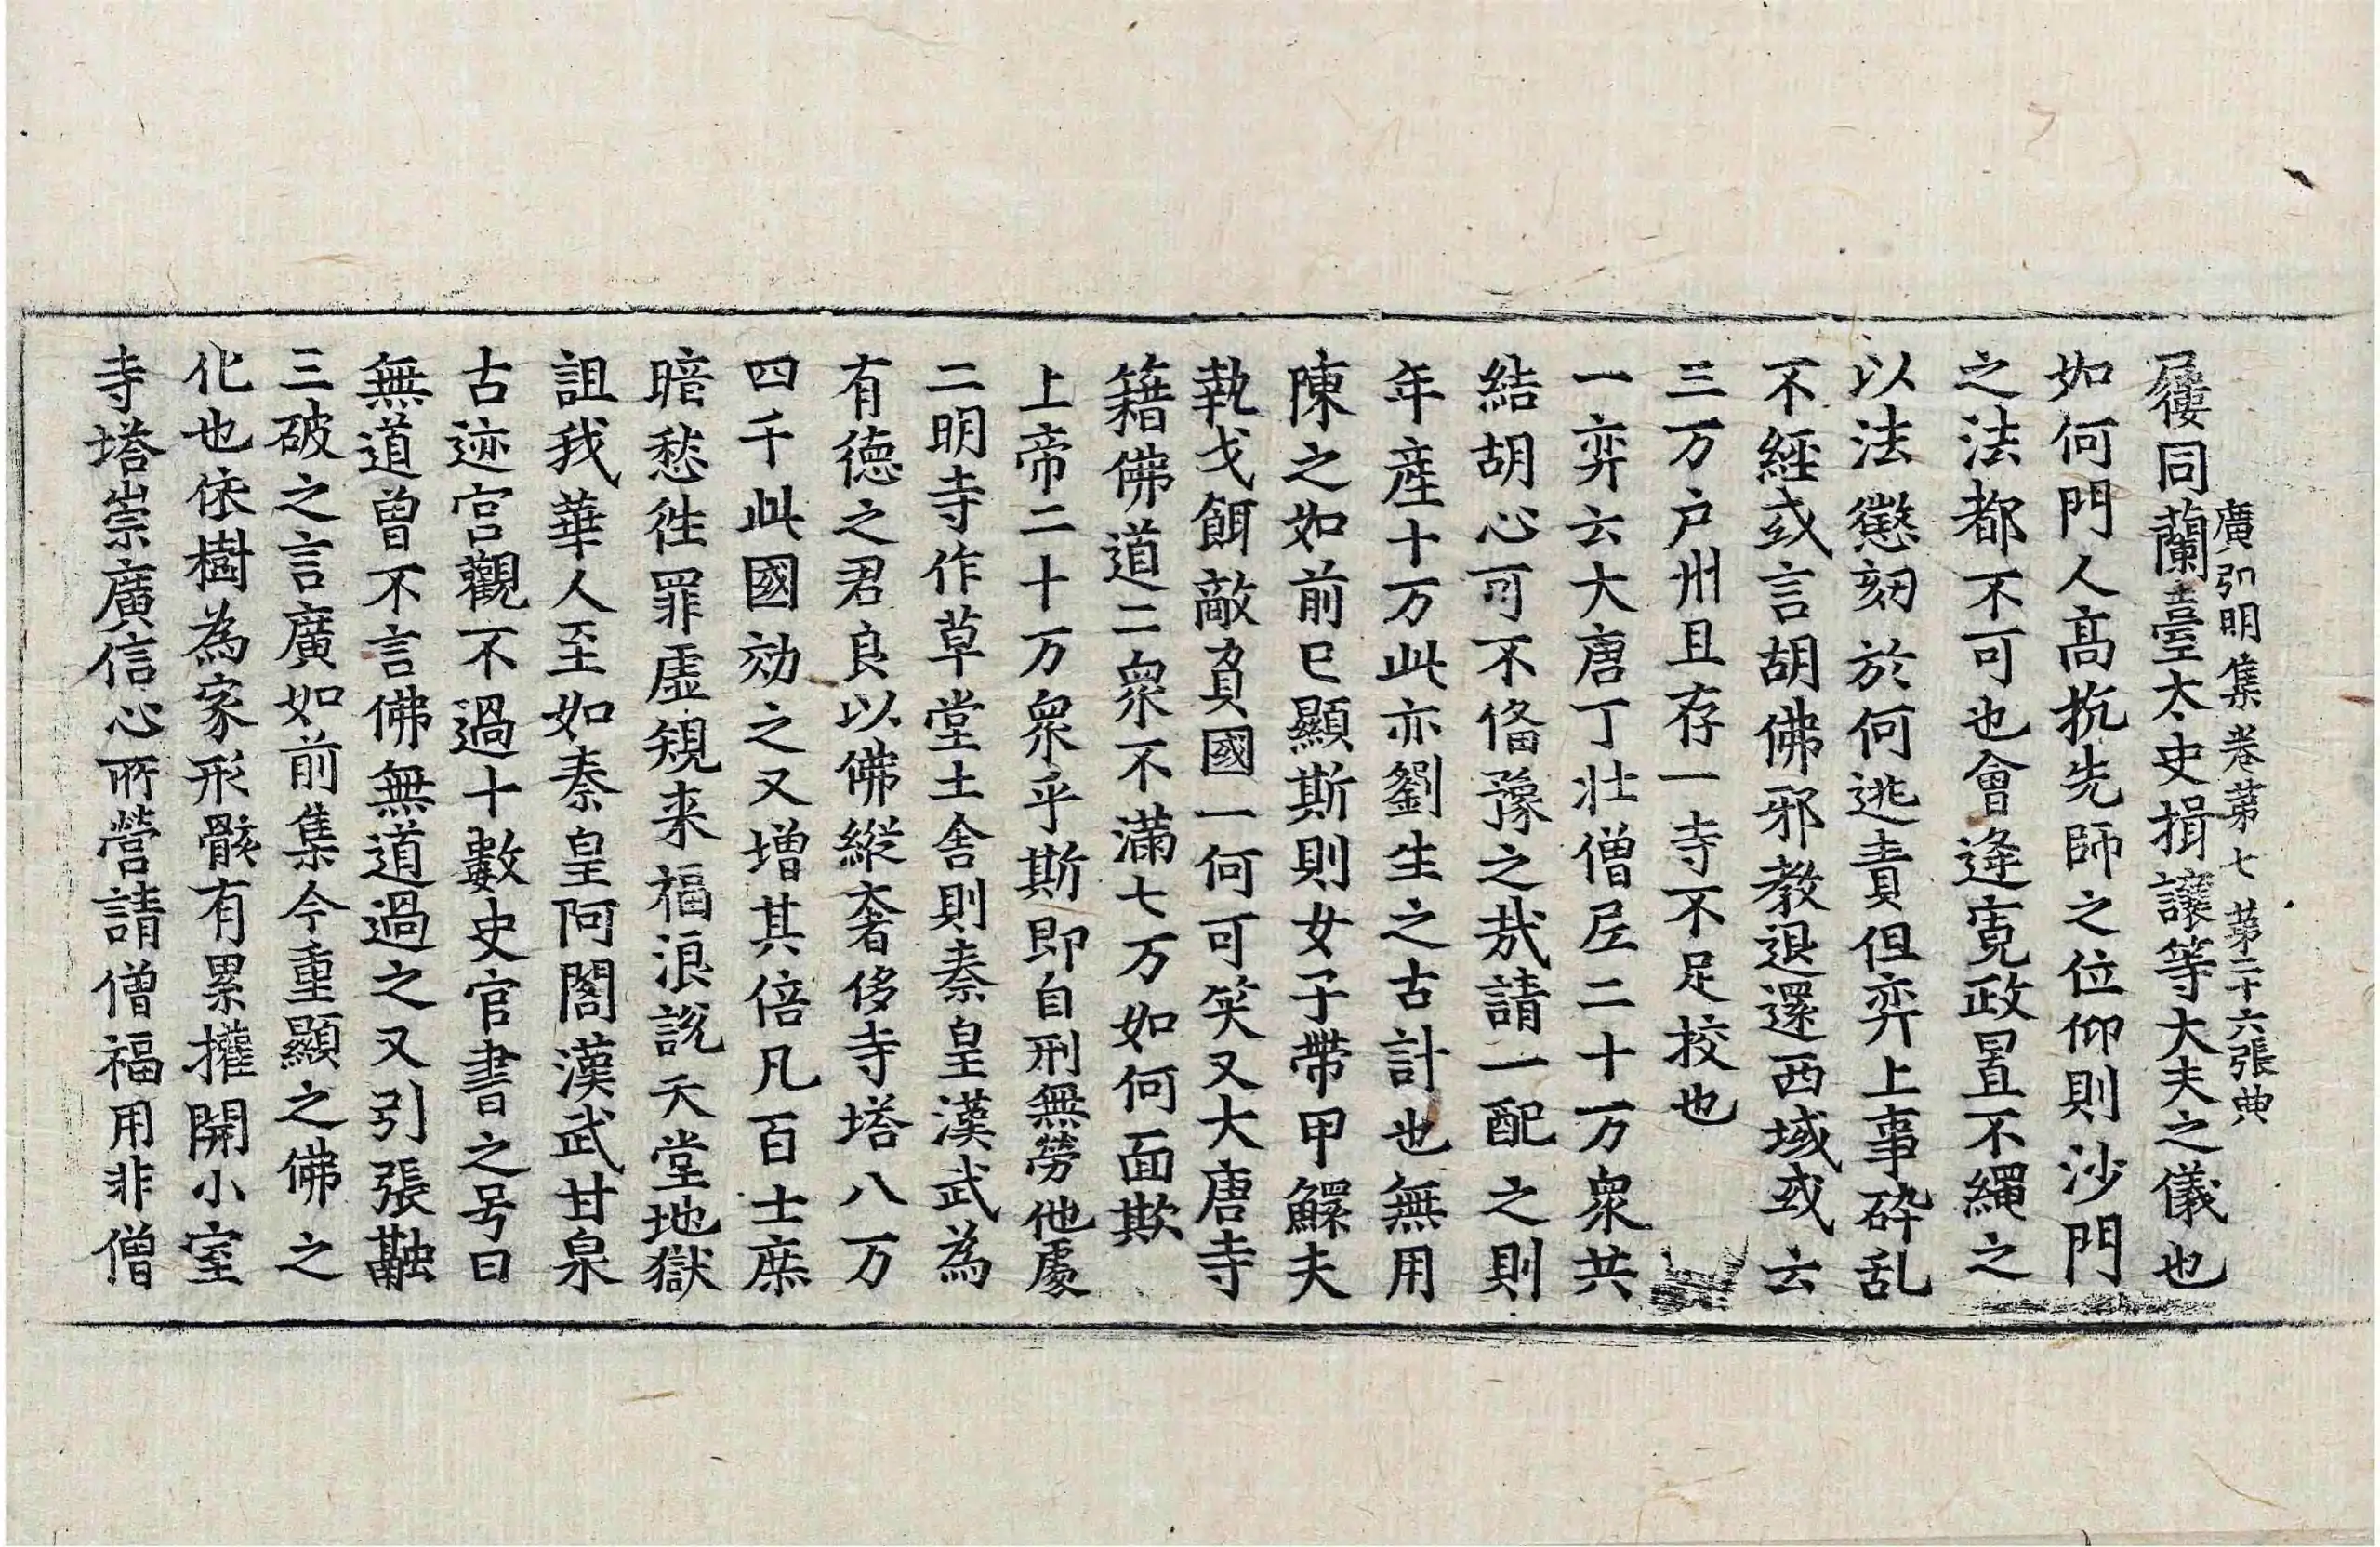 廣弘明集卷第七　第二十六張典
屨同蘭臺太史揖讓等大夫之儀也
如何門人髙抗先師之位仰則沙門
之法都不可也會逢寛政置不繩之
以法懲刻於何逃責但弈上事碎乱
不經或言胡佛邪教退還西域或云
三万户州且存一寺不足挍也
一弈云大唐丁壮僧尼二十万衆共
結胡心可不俻豫之㢤請一配之則
年産十万此亦劉生之古計也無用
陳之如前已顯斯則女子帶甲鰥夫
執戈餌敵負國一何可笑又大唐寺
籍佛道二衆不滿七万如何面欺
上帝二十万衆乎斯即自刑無勞他處
二明寺作草堂土舍則秦皇漢武為
有德之君良以佛縱奢侈寺塔八万
四千此國効之又增其倍凡百士庶
暗愁徃罪虚規来福浪說天堂地獄
詛我華人至如秦皇阿閣漢武甘泉
古迹宫觀不過十數史官書之号曰
無道曾不言佛無道過之又引張融
三破之言廣如前集今重顯之佛之
化也依樹為家形骸有累權開小室
寺塔崇廣信心所營請僧福用非僧